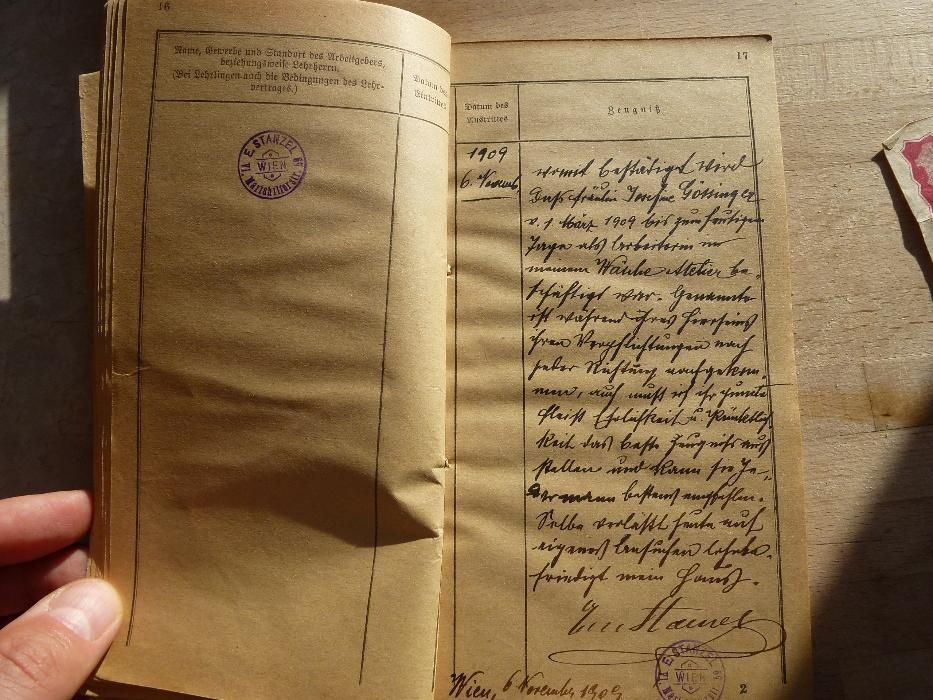 16
Name, Gewerbe und Standort des Arbeitgebers,
beziehungsweise Lehrherrn.
(Bei Lehrlingen auch die Bedingungen des Lehr-
vertrages.)
Datum des
Eintrittes
E. STANZEL
WIEN
VI. Mariahilferstr.
17
Datum des
Austrittes
Zeugniß
1909
6. Novemb
womit bestätigt wird
daß Fräulein Josefine Gössinger
v. 1. März 1909 bis zum heutigen
Tage als Arbeiterin in
meinem Wäsche-Atelier be-
schäftigt war. Genannte
ist während ihres Hierseins
ihren Verpflichtungen nach
jeder Richtung nachgekom-
men, auch muß ich ihr
Fleiß Ehrlichkeit u. Pünktlich
keit das beste Zeugniß aus
stellen und kann sie Je-
dermann bestens empfehlen.
Selbe verläßt heute auf
eigenes Ansuchen lohnbe-
friedigt mein Haus.
Stanzel
E. STANZEL
WIEN
Wien, 6 November 1909
2